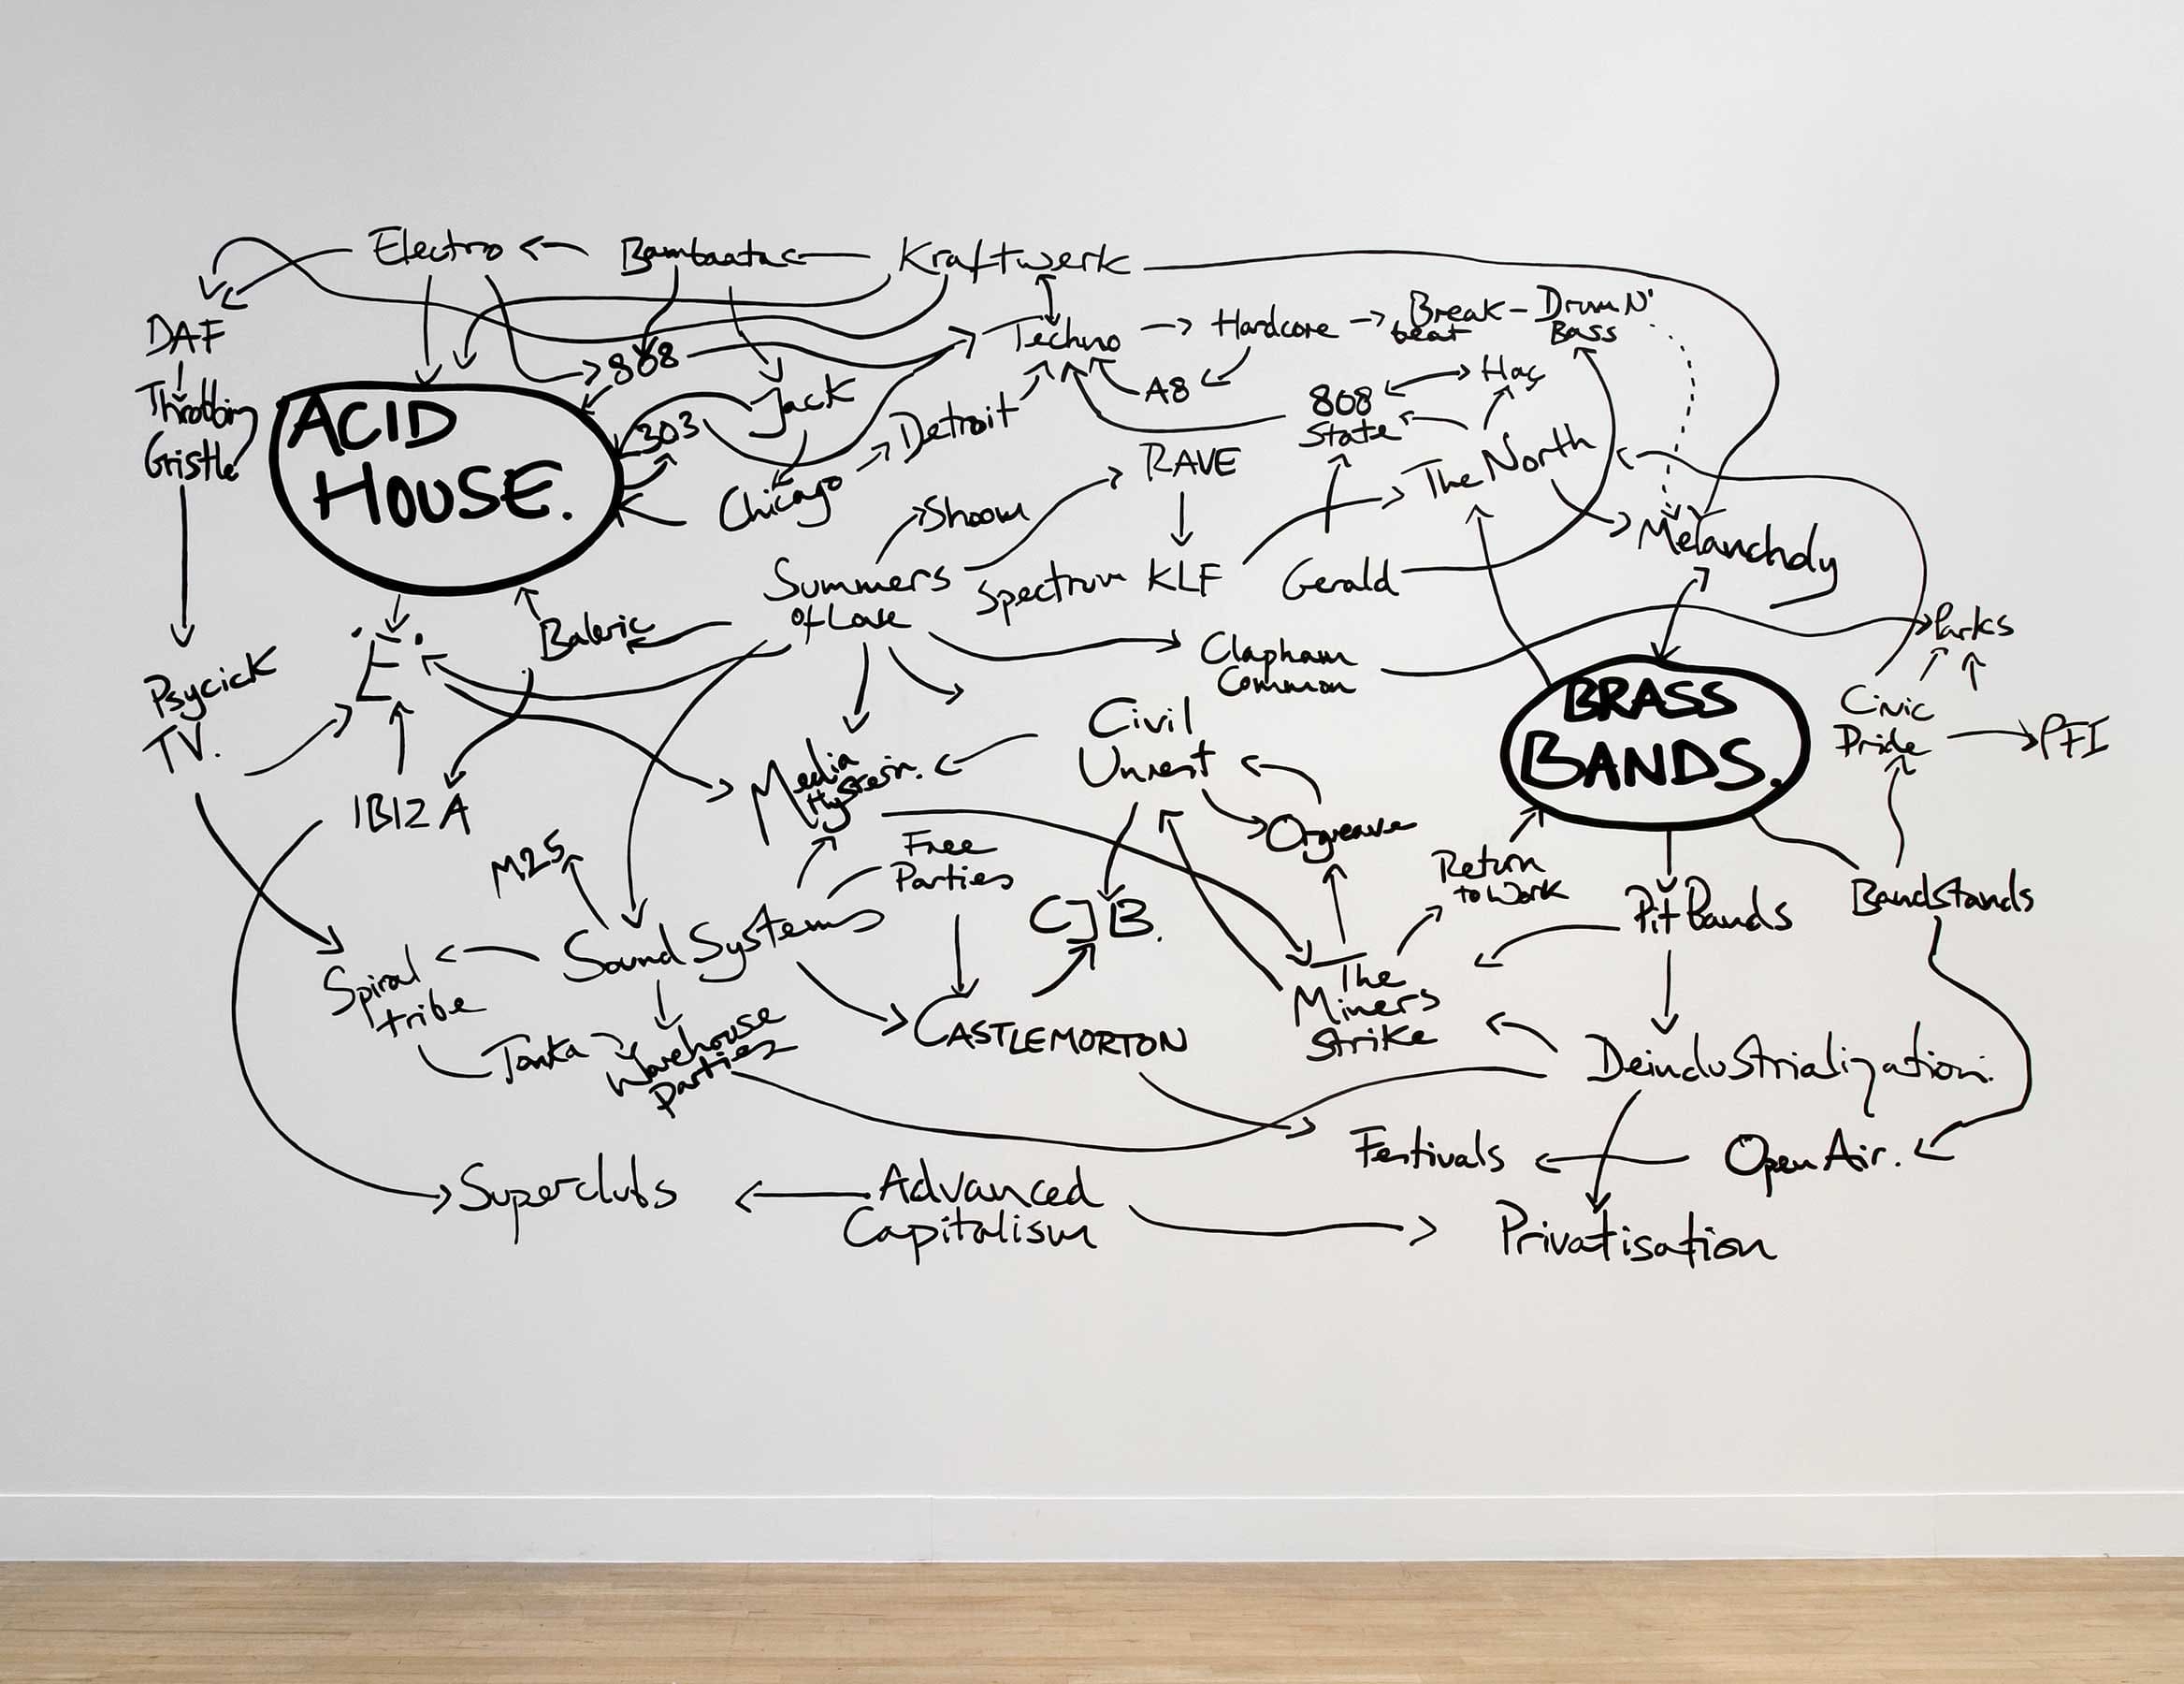 Electro
Bambaata
Kraftwerk
DAF
808
Techno
Hardcore
Break-
beat
Drum N'
Bass
Throbbing
Gristle
ACID
HOUSE.
303
Jack
Detroit
A8
808
State
Haç
Chicago
RAVE
The North
Shoom
Summers
of Love
Spectrum
KLF
Gerald
Melancholy
Baleric
'E'
Clapham
Common
Parks
Psycick
TV.
BRASS
BANDS.
Civic
Pride
PFI
Civil
Unrest
Media
Hysteria.
IBIZA
Orgreave
M25
Free
Parties
Return
to Work
Pit Bands
Bandstands
CJB.
Sound Systems
Spiral
tribe
The
Miners
Strike
Tonka
Warehouse
parties
CASTLEMORTON
Deindustrialization.
Festivals
Open Air.
Superclubs
Advanced
Capitalism
Privatisation